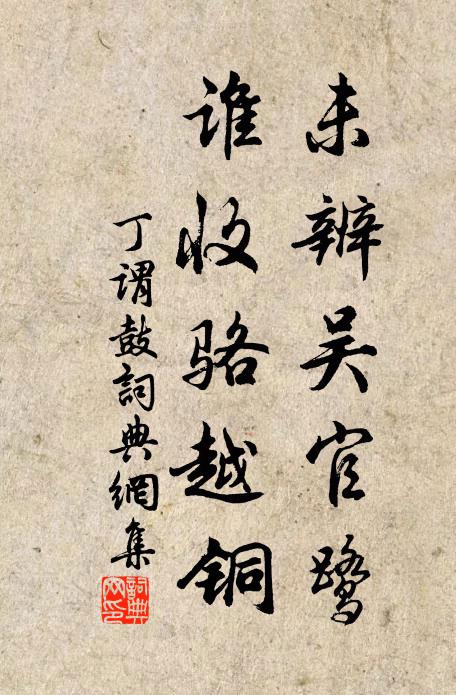 未辨吴官鹭
谁收骆越铜
丁谓鼓詞典網集
詞典网印